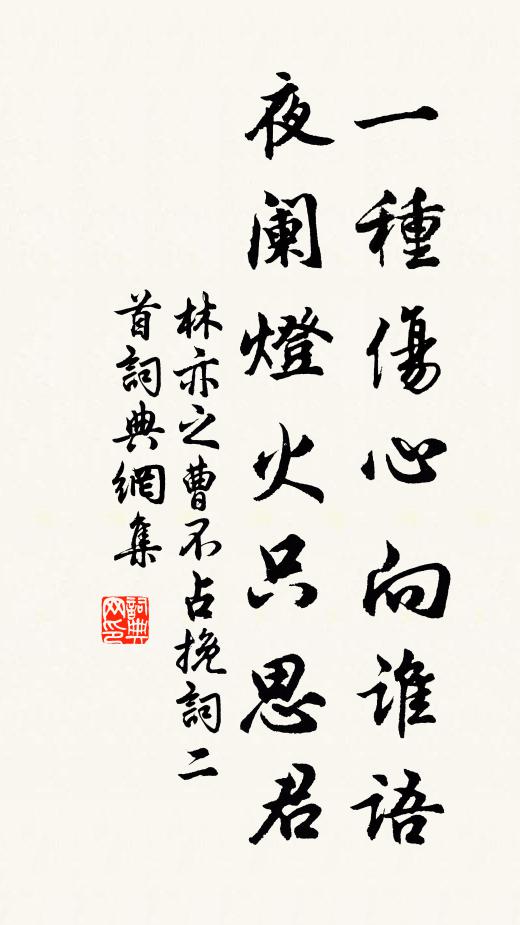 一種傷心向誰語
夜阑燈火只思君
林亦之曹不占挽詞二
首詞典網集
詞典
网印